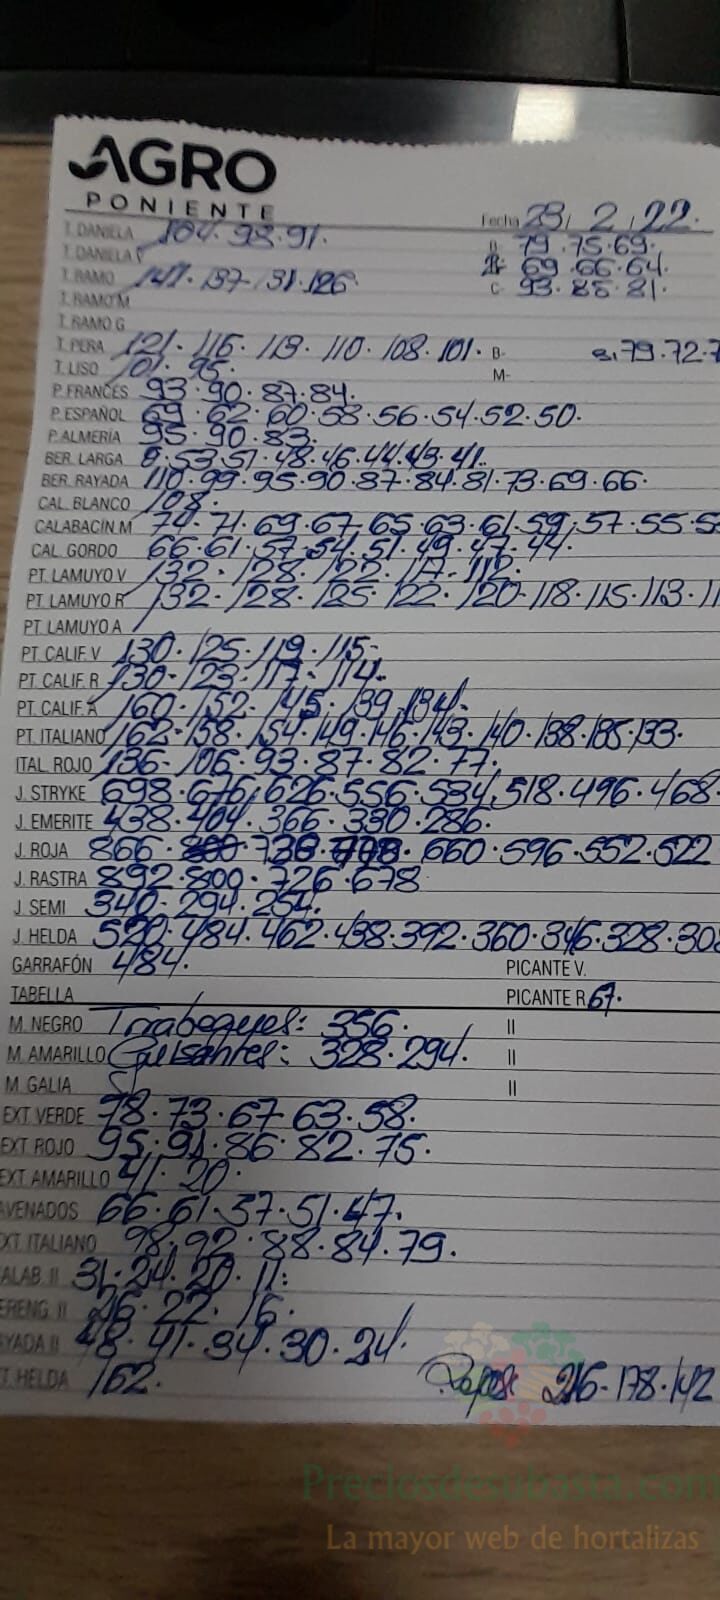 AGRO
PONIENTE
Fecha 23, 2, 22.
T. DANIELA 104. 98. 91. II- 79. 75. 69.
T. DANELA V 69. 66. 64.
T. RAMO 147. 137. 131. 126 C- 93. 85. 81.
T. RAMO M
T. RAMO G
T. PERA 121. 116. 113. 110. 108. 101. B- 79. 72. 7
T. LISO 101. 95. M-
P. FRANCÉS 93. 90. 87. 84.
P. ESPAÑOL 69. 62. 60. 58. 56. 54. 52. 50.
P. ALMERÍA 95. 90. 83.
BER. LARGA 53. 51. 48. 46. 44. 43. 41.
BER. RAYADA 110. 99. 95. 90. 87. 84. 81. 73. 69. 66.
CAL. BLANCO 108.
CALABACÍN M 74. 71. 69. 67. 65. 63. 61. 59. 57. 55. 5
CAL. GORDO 66. 61. 57. 54. 51. 49. 47. 44.
PT. LAMUYO V 132. 128. 122. 117. 112.
PT. LAMUYO R 132. 128. 125. 122. 120. 118. 115. 113. 11
PT. LAMUYO A
PT. CALIF. V 130. 125. 119. 115.
PT. CALIF. R 130. 123. 117. 114.
PT. CALIF. A 160. 152. 145. 139. 134.
PT. ITALIANO 162. 158. 154. 149. 146. 143. 140. 138. 135. 133.
ITAL. ROJO 136. 106. 93. 87. 82. 77.
J. STRYKE 698. 676. 626. 556. 534. 518. 496. 468.
J. EMERITE 438. 404. 366. 330. 286.
J. ROJA 866. 660. 596. 552. 522
J. RASTRA 892. 800. 726. 678
J. SEMI 340. 294. 254.
J. HELDA 520. 484. 462. 438. 392. 360. 346. 328. 308
GARRAFÓN 484. PICANTE V.
TABELLA PICANTE R 67.
M. NEGRO 356. II
M. AMARILLO Guisantes: 328. 294. II
M. GALIA II
EXT VERDE 78. 73. 67. 63. 58.
EXT ROJO 95. 91. 86. 82. 75.
EXT AMARILLO 41. 20.
AVENADOS 66. 61. 57. 51. 47.
XT. ITALIANO 98. 92. 88. 84. 79.
ALAB. II 31. 24. 20. 11.
ERENG. II 26. 22. 16.
YADA II 48. 41. 34. 30. 24.
T. HELDA 162. 216. 178. 142
Preciosdesubasta.com
La mayor web de hortalizas